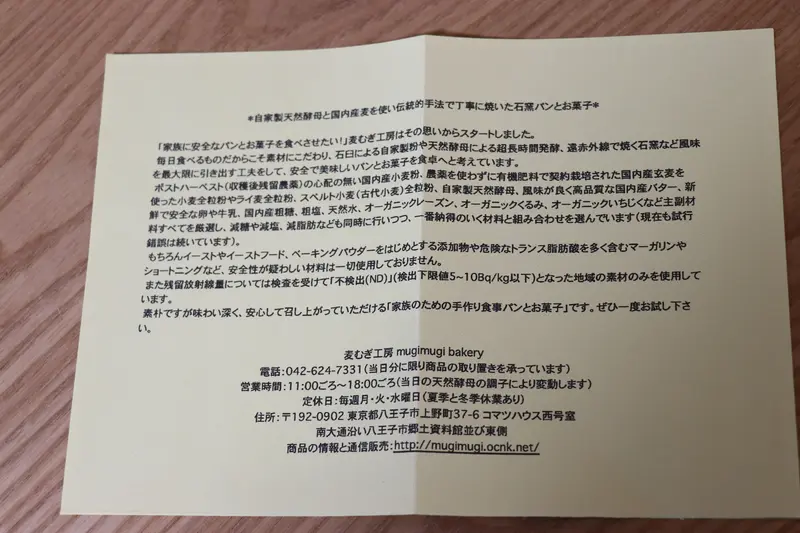 *自家製天然酵母と国内産麦を使い伝統的手法で丁寧に焼いた石窯パンとお菓子*
「家族に安全なパンとお菓子を食べさせたい!」麦むぎ工房はその思いからスタートしました。
毎日食べるものだからこそ素材にこだわり、石臼による自家製粉や天然酵母による超長時間発酵、遠赤外線で焼く石窯など風味
を最大限に引き出す工夫をして、安全で美味しいパンとお菓子を食卓へと考えています。
ポストハーベスト(収穫後残留農薬)の心配の無い国内産小麦粉、農薬を使わずに有機肥料で契約栽培された国内産玄麦を
使った小麦全粒粉やライ麦全粒粉、スペルト小麦(古代小麦)全粒粉、自家製天然酵母、風味が良く高品質な国内産バター、新
鮮で安全な卵や牛乳、国内産粗糖、粗塩、天然水、オーガニックレーズン、オーガニックくるみ、オーガニックいちじくなど主副材
料すべてを厳選し、減糖や減塩、減脂肪なども同時に行いつつ、一番納得のいく材料と組み合わせを選んでいます(現在も試行
錯誤は続いています)。
もちろんイーストやイーストフード、ベーキングパウダーをはじめとする添加物や危険なトランス脂肪酸を多く含むマーガリンや
ショートニングなど、安全性が疑わしい材料は一切使用しておりません。
また残留放射線量については検査を受けて「不検出(ND)」(検出下限値5~10Bq/kg以下)となった地域の素材のみを使用して
います。
素朴ですが味わい深く、安心して召し上がっていただける「家族のための手作り食事パンとお菓子」です。ぜひ一度お試し下さ
い。
麦むぎ工房 mugimugi bakery
電話:042-624-7331(当日分に限り商品の取り置きを承っています)
営業時間:11:00ごろ~18:00ごろ(当日の天然酵母の調子により変動します)
定休日:毎週月・火・水曜日(夏季と冬季休業あり)
住所:〒192-0902 東京都八王子市上野町37-6 コマツハウス西号室
南大通沿い八王子市郷土資料館並び東側
商品の情報と通信販売:http://mugimugi.ocnk.net/